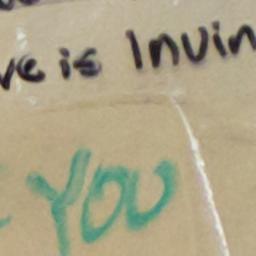 ve is Invin
YOU